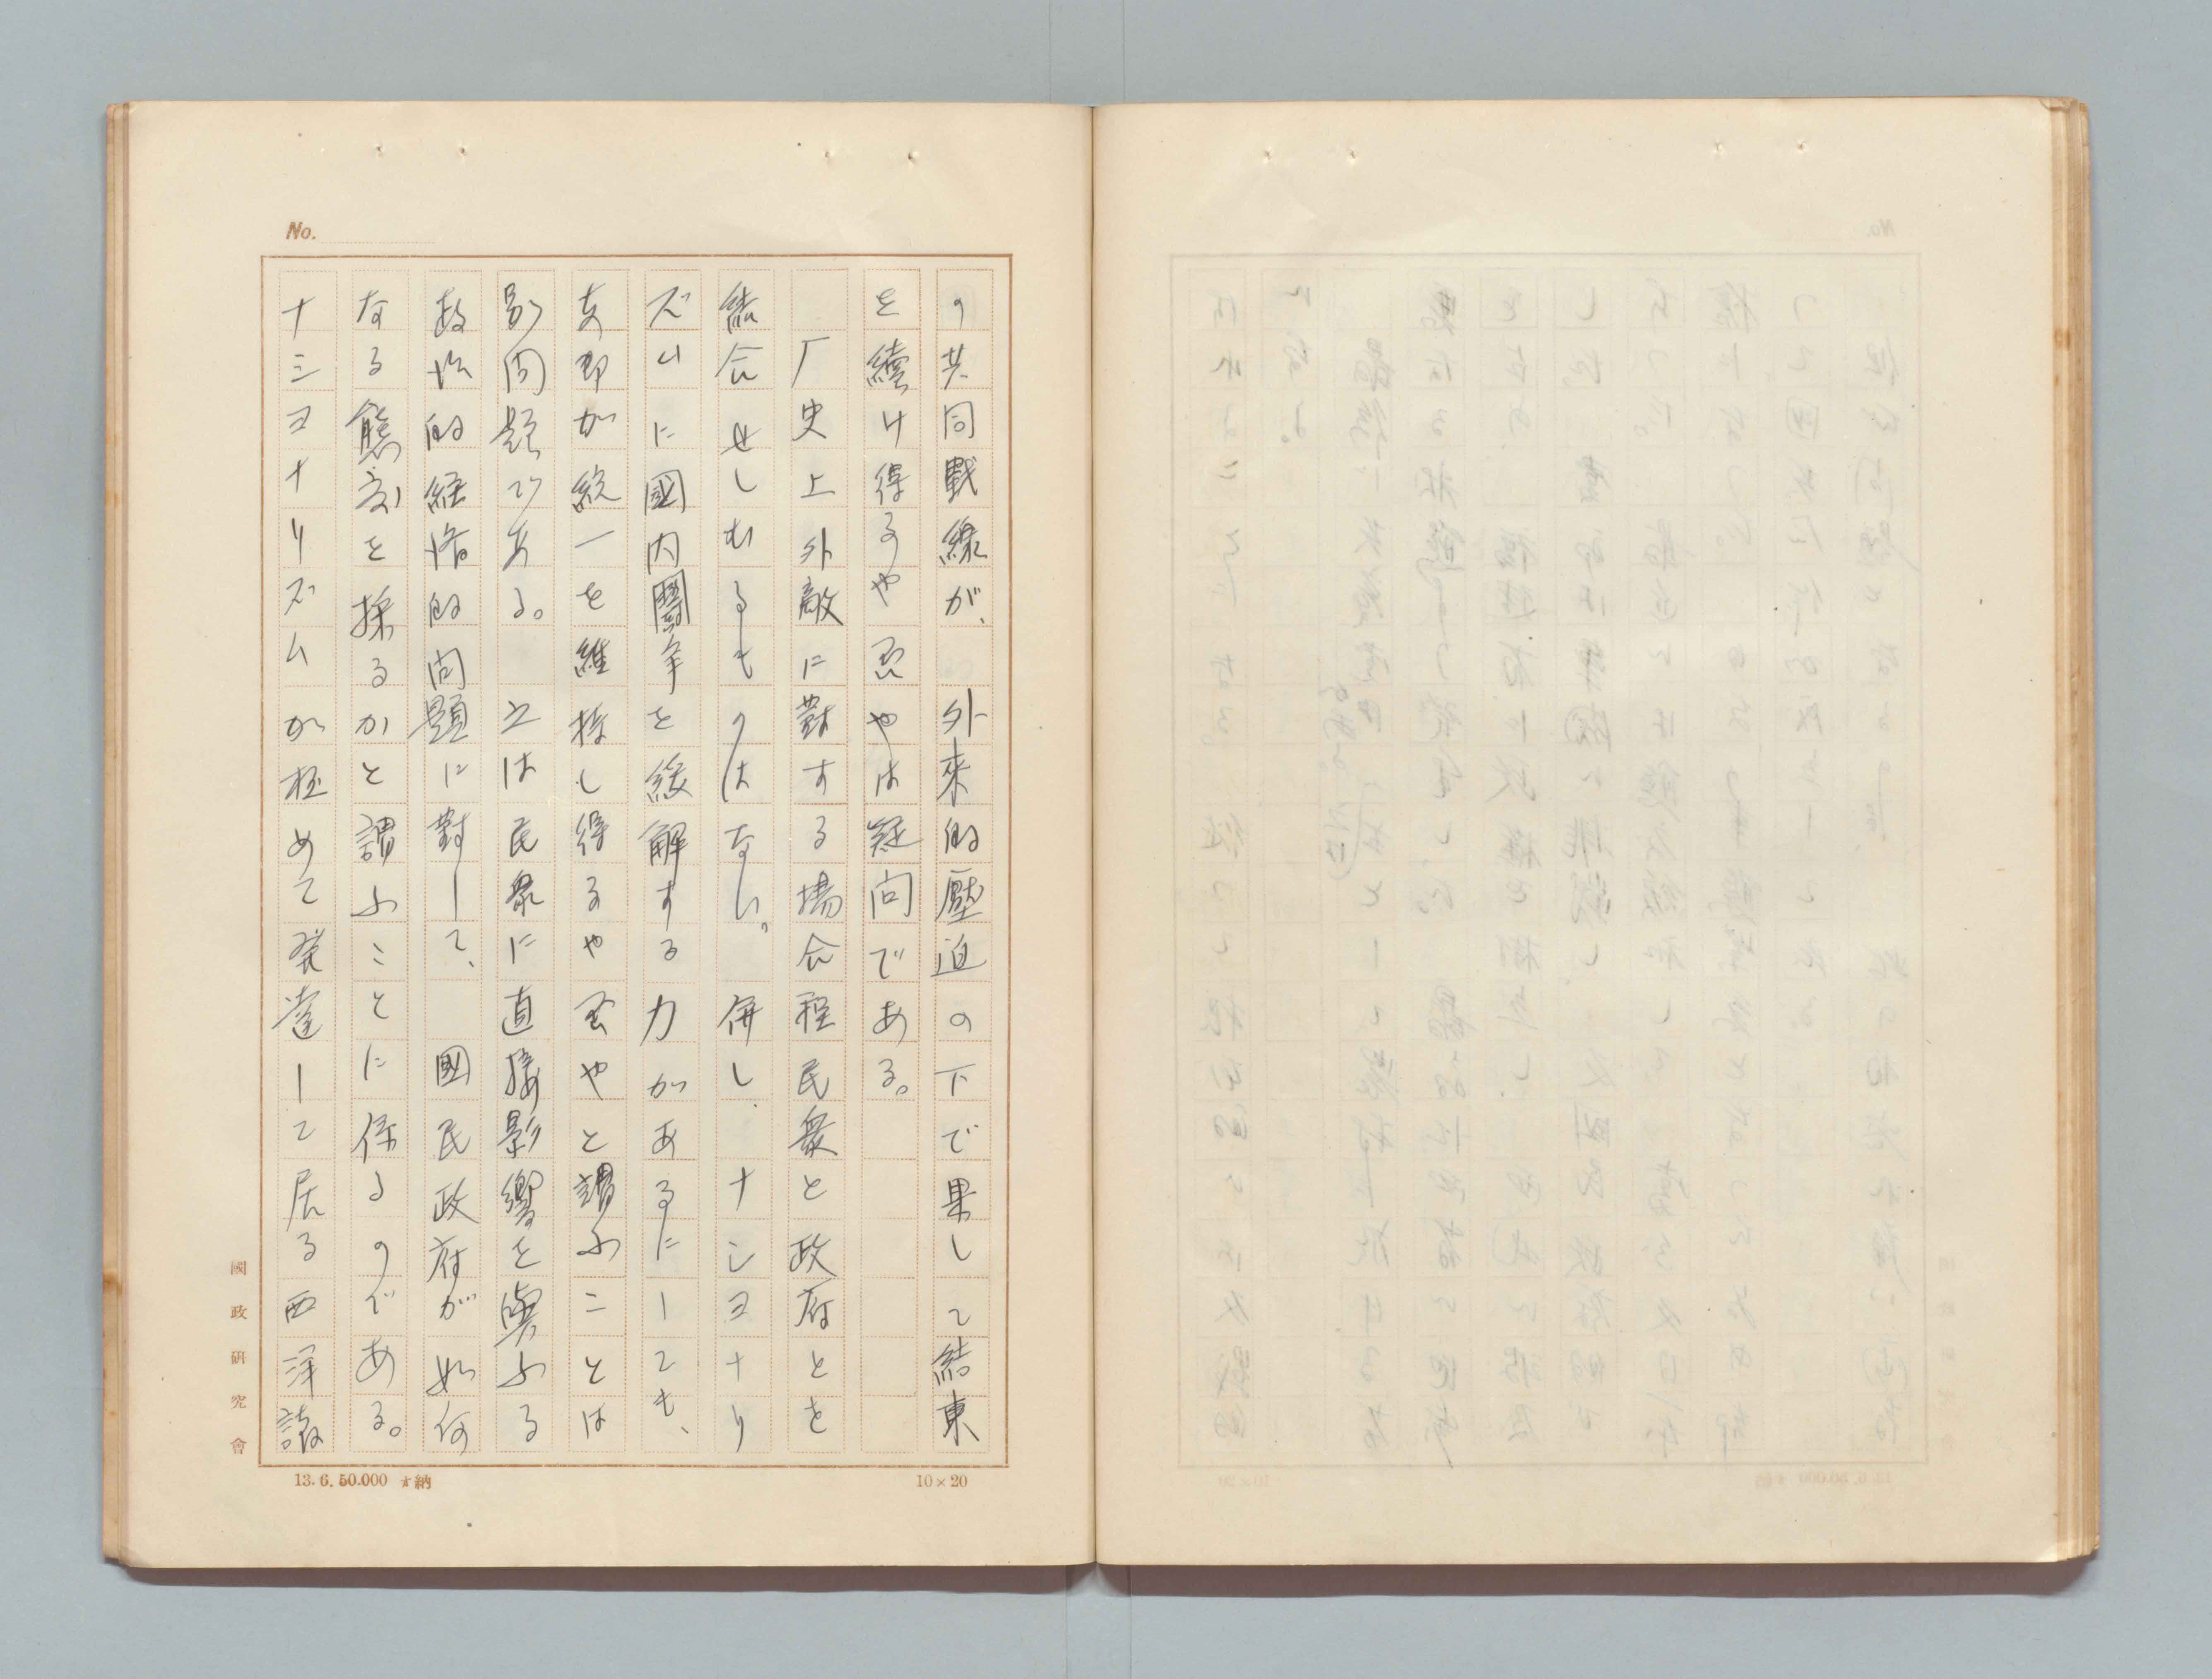 の共同戰線が、外來的壓迫の下で果して結束
を續け得るや否やは疑问である。
厂史上外敵に對する場合程民衆と政府とを
結合せしむるものはない。併し、ナシヨナリ
ズムに國内鬪争を緩解する力があるにしても、
支那が統一を維持し得るや否やと謂ふことは
別问題である。之は民衆に直接影響を與ふる
政治的経済的问題に對して、國民政府が如何
なる態度を採るかと謂ふことに係るのである。
ナシヨナリズムが極めて発達して居る西洋諸
No.
國政研究會
13. 6. 50.000 納
10×20